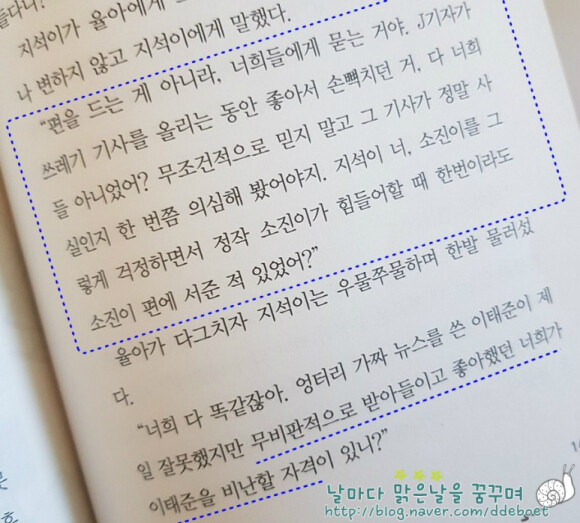 지석이가 율아에게
나 변하지 않고 지석이에게 말했다.
“편을 드는 게 아니라, 너희들에게 묻는 거야. J기자가
쓰레기 기사를 올리는 동안 좋아서 손뼉치던 거, 다 너희
들 아니었어? 무조건적으로 믿지 말고 그 기사가 정말 사
실인지 한 번쯤 의심해 봤어야지. 지석이 너, 소진이를 그
렇게 걱정하면서 정작 소진이가 힘들어할 때 한번이라도
소진이 편에 서준 적 있었어?”
율아가 다그치자 지석이는 우물쭈물하며 한발 물러섰
다.
“너희 다 똑같잖아. 엉터리 가짜 뉴스를 쓴 이태준이 제
일 잘못했지만 무비판적으로 받아들이고 좋아했던 너희가
이태준을 비난할 자격이 있니?”
날마다 맑은날을 꿈꾸며
http://blog.naver.com/ddeboet